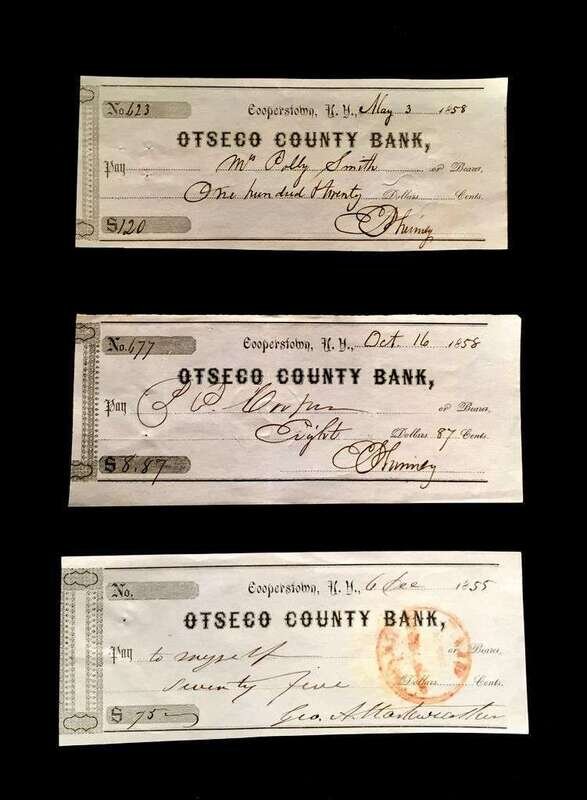 No. 623 Cooperstown, N. Y., May 3 1858
OTSEGO COUNTY BANK,
Pay Mrs Polly Smith or Bearer,
One hundred & twenty Dollars Cents.
$120
E Phinney
No. 677 Cooperstown, N. Y., Oct. 16 1858
OTSEGO COUNTY BANK,
Pay P. Cooper or Bearer,
Eight Dollars 87 Cents.
$8.87
E Phinney
No. Cooperstown, N. Y., 6 Dec 1855
OTSEGO COUNTY BANK,
Pay to myself or Bearer,
seventy five Dollars Cents.
$75
Geo. A. Starkweather